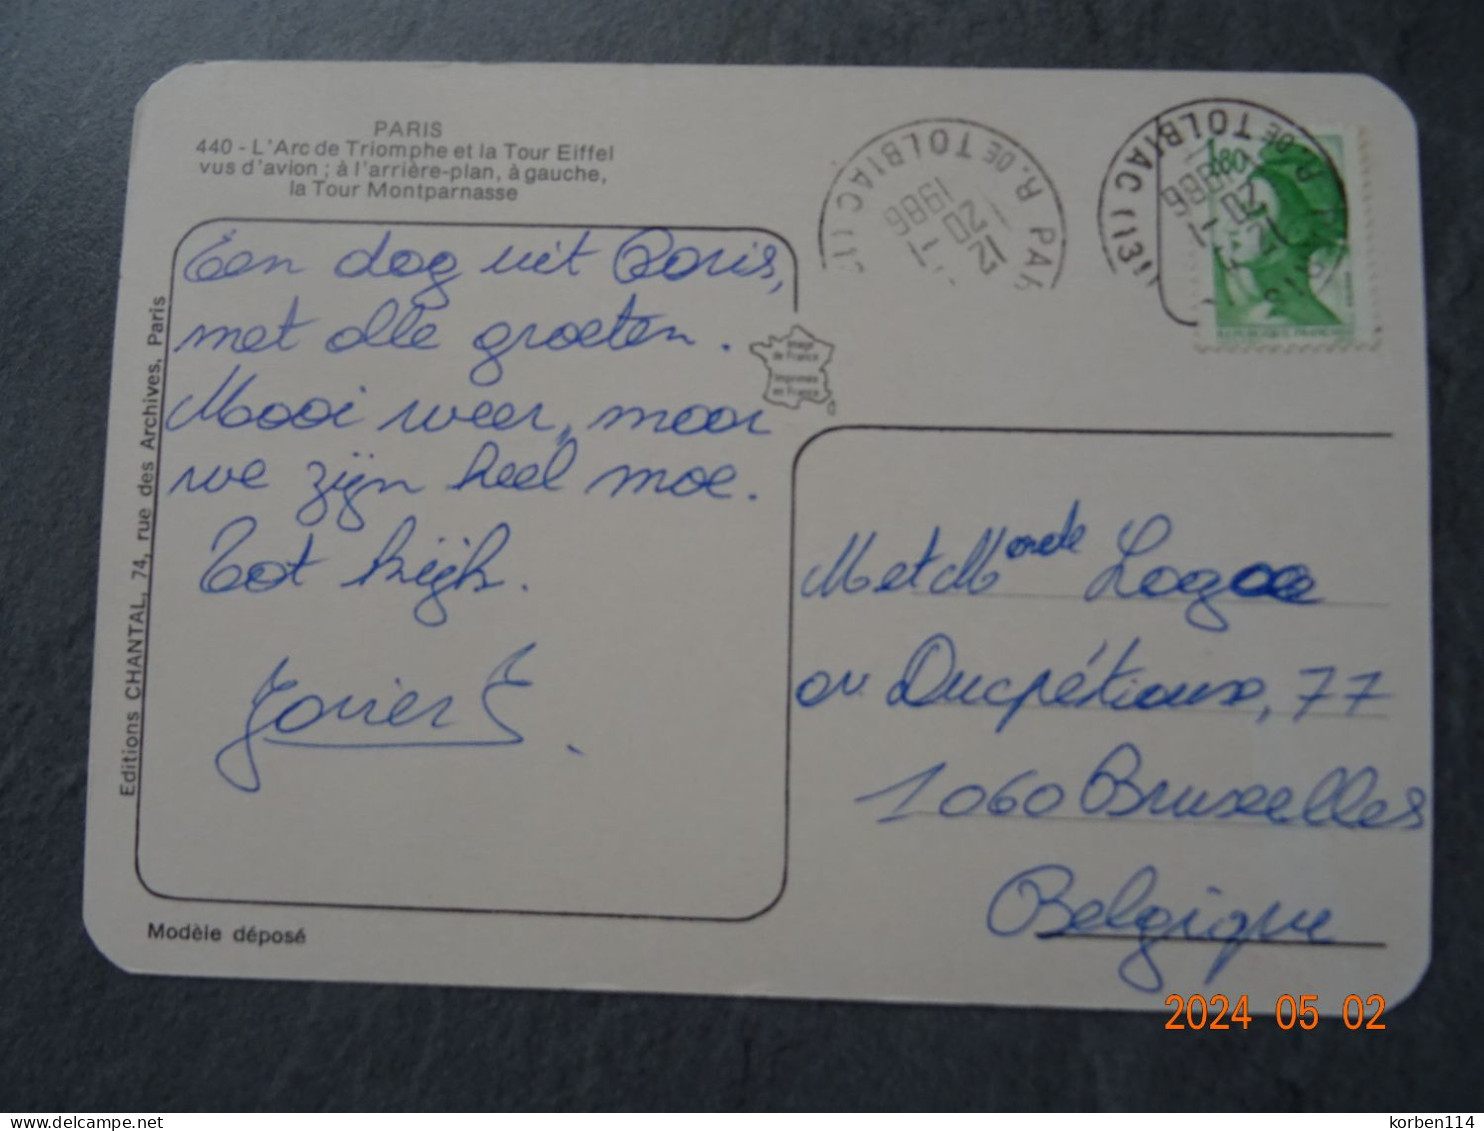 PARIS
440 - L'Arc de Triomphe et la Tour Eiffel
vus d'avion ; à l'arrière-plan, à gauche,
la Tour Montparnasse
Een dag uit Paris,
met alle groeten.
Mooi weer, maar
we zijn heel moe.
Tot kijk.
Xavier
Editions CHANTAL, 74, rue des Archives, Paris
Modèle déposé
Image
de France
Imprimée
en France
R. DE TOLBIAC (13
PAR
12 - 1
20
1986
R. DE TOLBIAC (13)
12 - 1
20
1986
1,80
REPUBLIQUE FRANÇAISE
M et M
av. Ducpétiaux, 77
1060 Bruxelles
Belgique
2024 05 02
delcampe.net
korben114